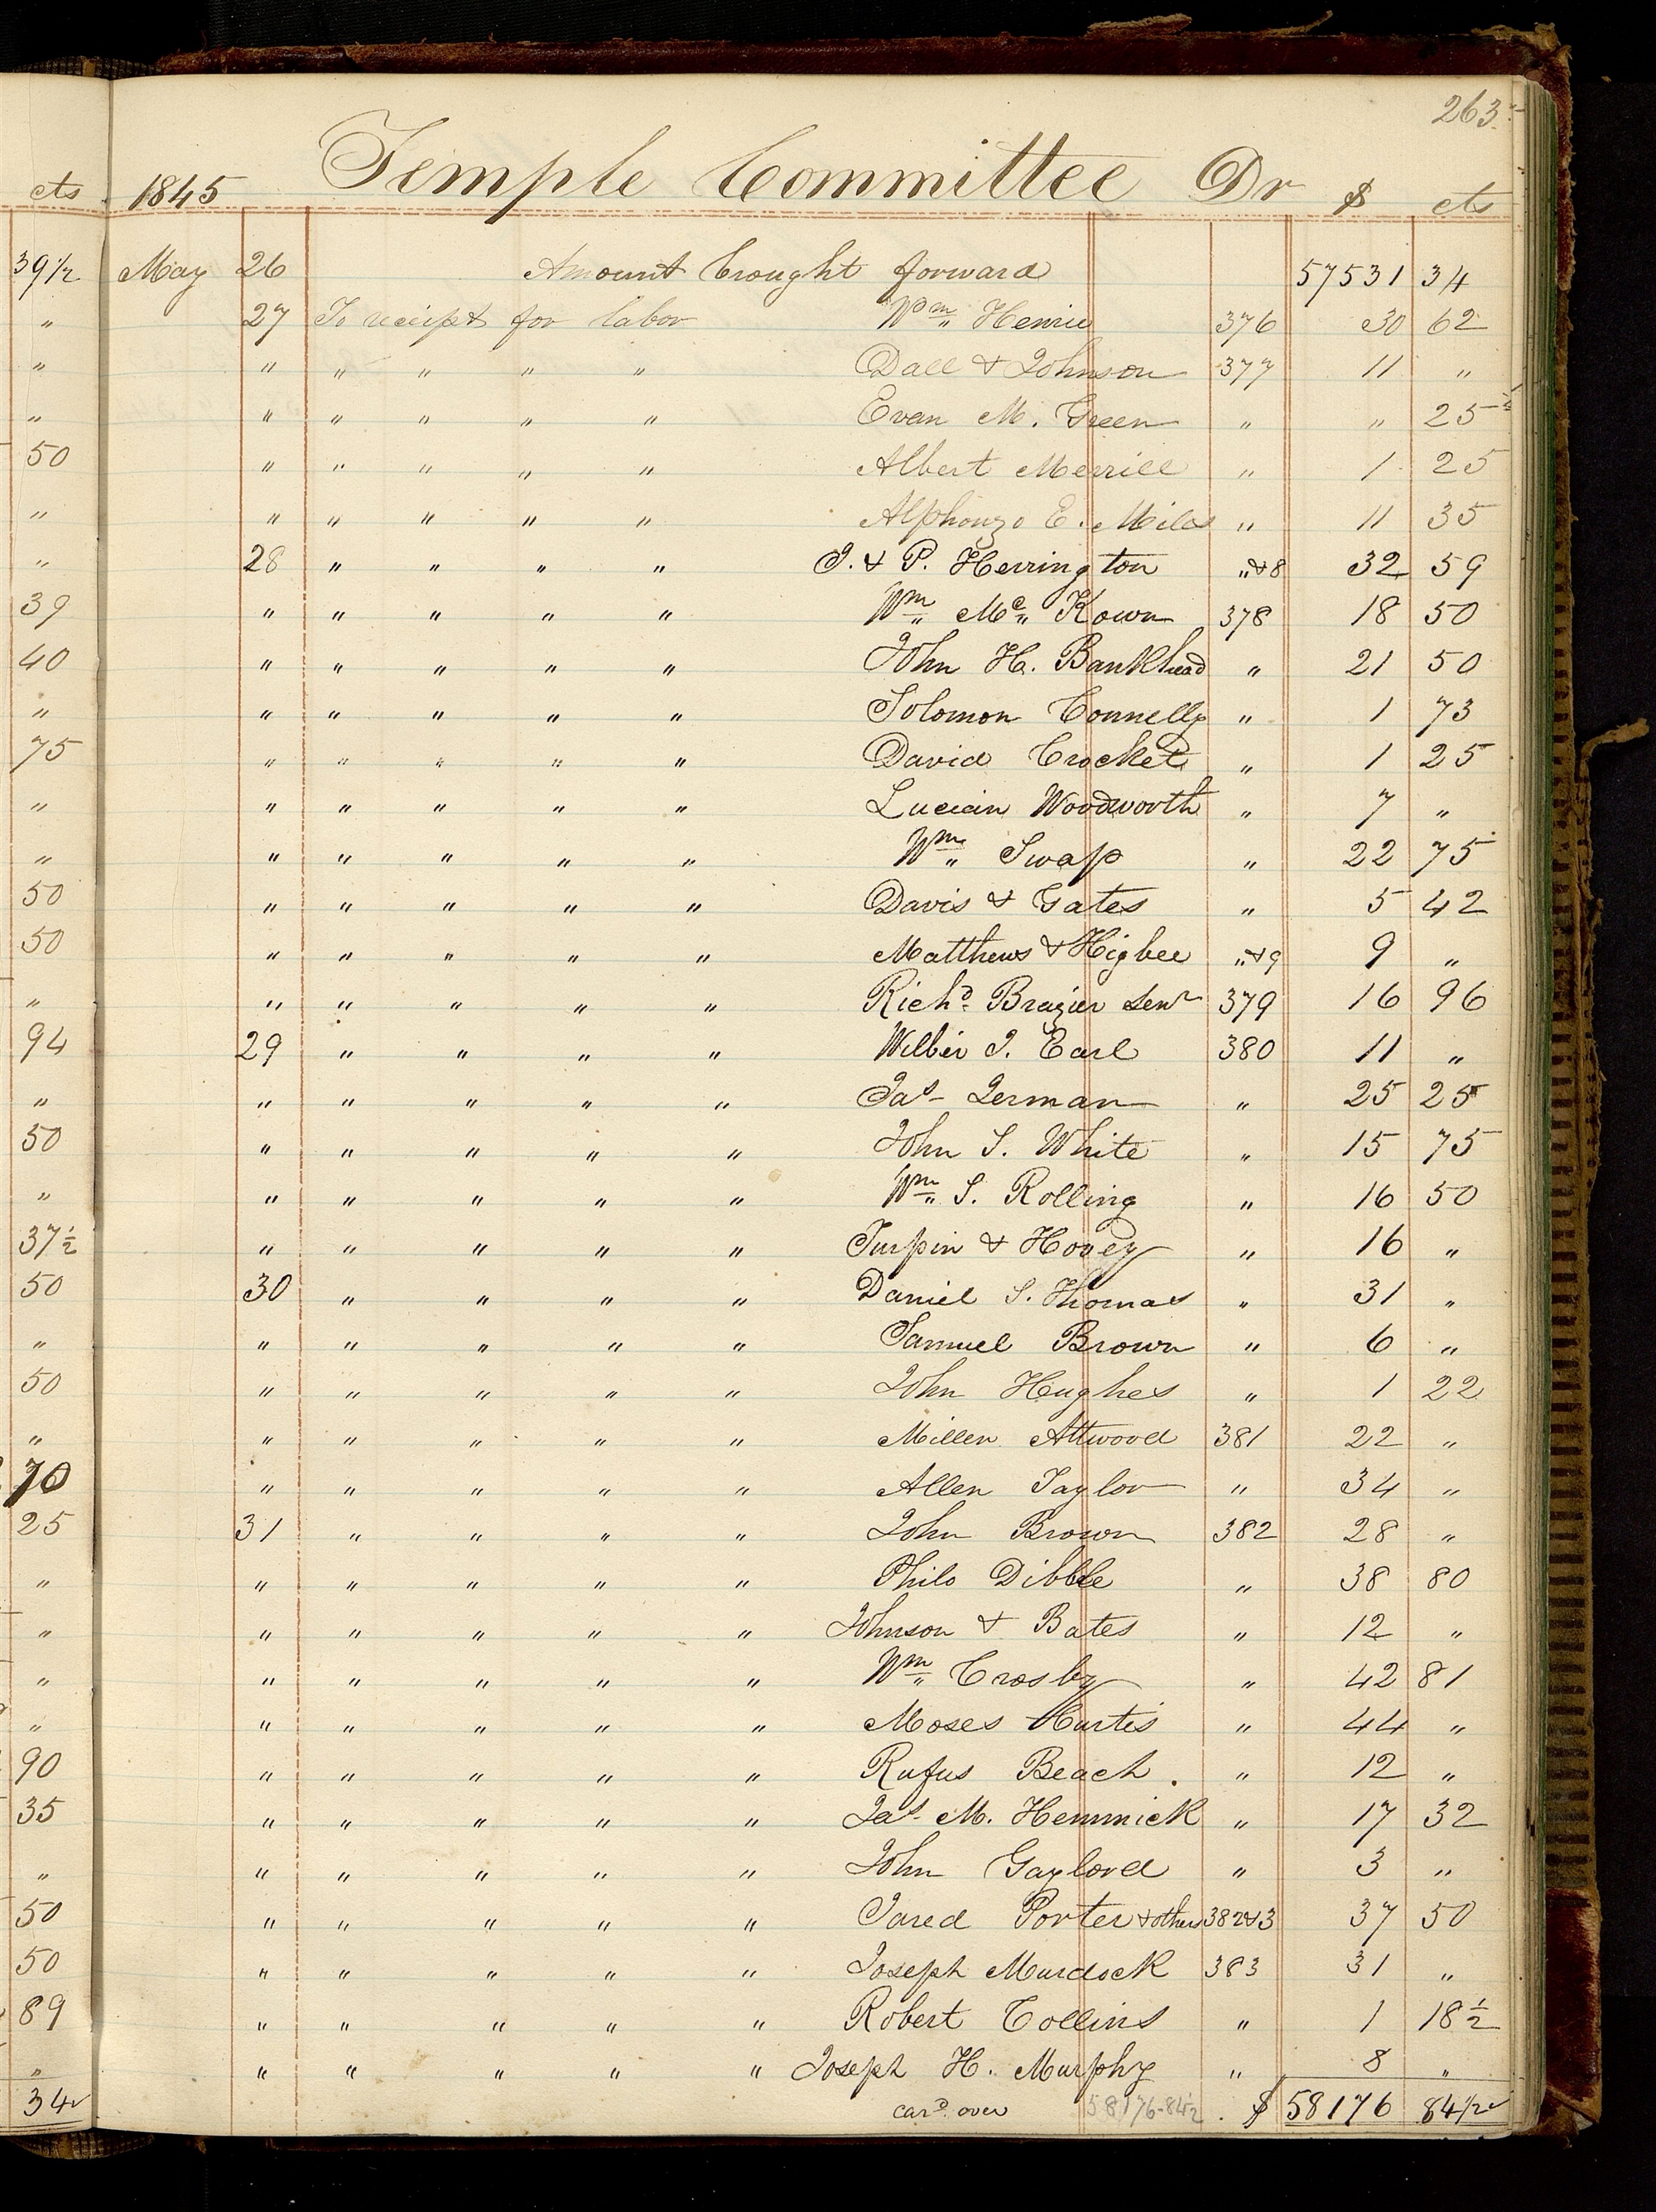 263.
cts 1845 Temple Committee Dr $ cts
39 1/2 May 26 Amount brought forward 57531 34
" 27 To receipt for labor Wm Henrie 376 30 62
" " " " " " Dall & Johnson 377 11 "
" " " " " " Evan M. Green " " 25 1/2
50 " " " " " Albert Merrill " 1 25
" " " " " " Alphonzo E. Miles " 11 35
" 28 " " " " J. & P. Herrington "&8 32 59
39 " " " " " Wm Mc Kown 378 18 50
40 " " " " " John H. Bankhead " 21 50
" " " " " " Solomon Connelly " 1 73
75 " " " " " David Crocket " 1 25
" " " " " " Lucien Woodworth " 7 "
" " " " " " Wm Swap " 22 75
50 " " " " " Davis & Gates " 5 42
50 " " " " " Matthews & Higbee "&9 9 "
" " " " " " Richd Brazier Senr 379 16 96
94 29 " " " " Wilber J. Earl 380 11 "
" " " " " " Jas Lerman " 25 25
50 " " " " " John S. White " 15 75
" " " " " " Wm S. Rolling " 16 50
37 1/2 " " " " " Turpin & Hovey " 16 "
50 30 " " " " Daniel S. Thomas " 31 "
" " " " " " Samuel Brown " 6 "
50 " " " " " John Hughes " 1 22
" " " " " " Millen Attwood 381 22 "
70 " " " " " Allen Taylor " 34 "
25 31 " " " " John Brown 382 28 "
" " " " " " Philo Dibble " 38 80
" " " " " " Johnson & Bates " 12 "
" " " " " " Wm Crosby " 42 81
" " " " " " Moses Curtis " 44 "
90 " " " " " Rufus Beach. " 12 "
35 " " " " " Jas M. Hemmick " 17 32
" " " " " " John Gaylord " 3 "
50 " " " " " Jared Porter & others 382&3 37 50
50 " " " " " Joseph Murdock 383 31 "
89 " " " " " Robert Collins " 1 18 1/2
" " " " " " Joseph H. Murphy " 8 "
34 card over 58176-84 1/2 $ 58176 84 1/2